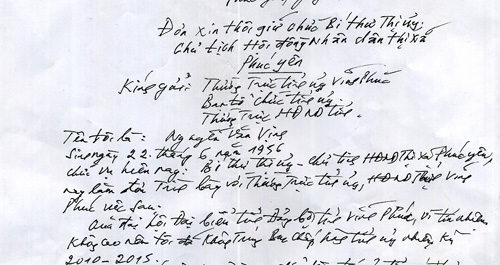 Đơn xin thôi giữ chức Bí thư Thị ủy;
Chủ tịch Hội đồng Nhân dân thị xã
Phúc yên
Kính gửi: Thường Trực tỉnh ủy Vĩnh Phúc
Ban tổ chức tỉnh ủy.
Thường Trực HĐND tỉnh.
Tên tôi là: Nguyễn Văn Ving
Sinh ngày 22 tháng 6 năm 1956
chức vụ hiện nay: Bí thư thị ủy - chủ tịch HĐND Thị xã Phúc yên,
nay làm đơn Trình bày với Thường Trực tỉnh ủy, HĐND Tỉnh Vĩnh
Phúc việc sau.
Qua Đại hội Đại biểu tỉnh Đảng bộ tỉnh Vĩnh Phúc, vì tín nhiệm
Không cao nên tôi đã Không Trúng Ban chấp hành tỉnh ủy nhiệm kỳ
2010-2015.